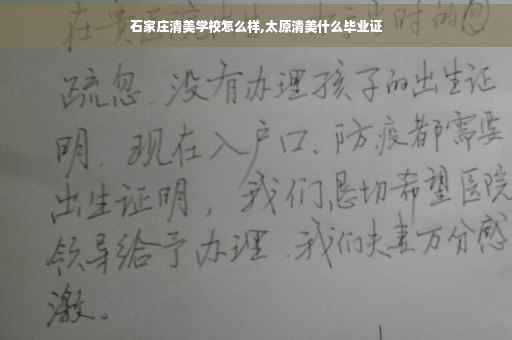 石家庄清美学校怎么样,太原清美什么毕业证
疏忽.没有办理孩子的出生证
明.现在入户口、防疫都需要
出生证明，我们恳切希望医院
领导给予办理.我们夫妻万分感
激。